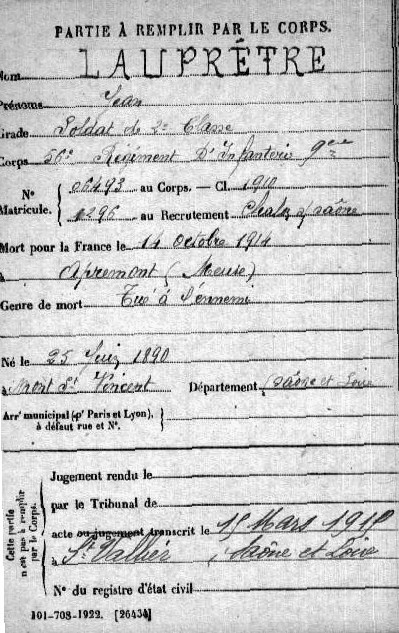 PARTIE À REMPLIR PAR LE CORPS.
Nom LAUPRÊTRE
Prénoms Jean
Grade Soldat de 2e Classe
Corps 56e Régiment D'Infanterie 9eme
N° Matricule. { 06493 au Corps. — Cl. 1910
1296 au Recrutement Chalon s/ Saône
Mort pour la France le 14 octobre 1914
à Apremont (Meuse)
Genre de mort Tué à l'ennemi
Né le 25 Juin 1890
à Mont St Vincent Département Saône et Loire
Arrt municipal (pr Paris et Lyon), à défaut rue et N°. }
Cette partie n'est pas à remplir par le Corps.
Jugement rendu le
par le Tribunal de
acte ou jugement transcrit le 15 Mars 1915
à St Vallier, Saône et Loire
N° du registre d'état civil
101-708-1922. [26434]